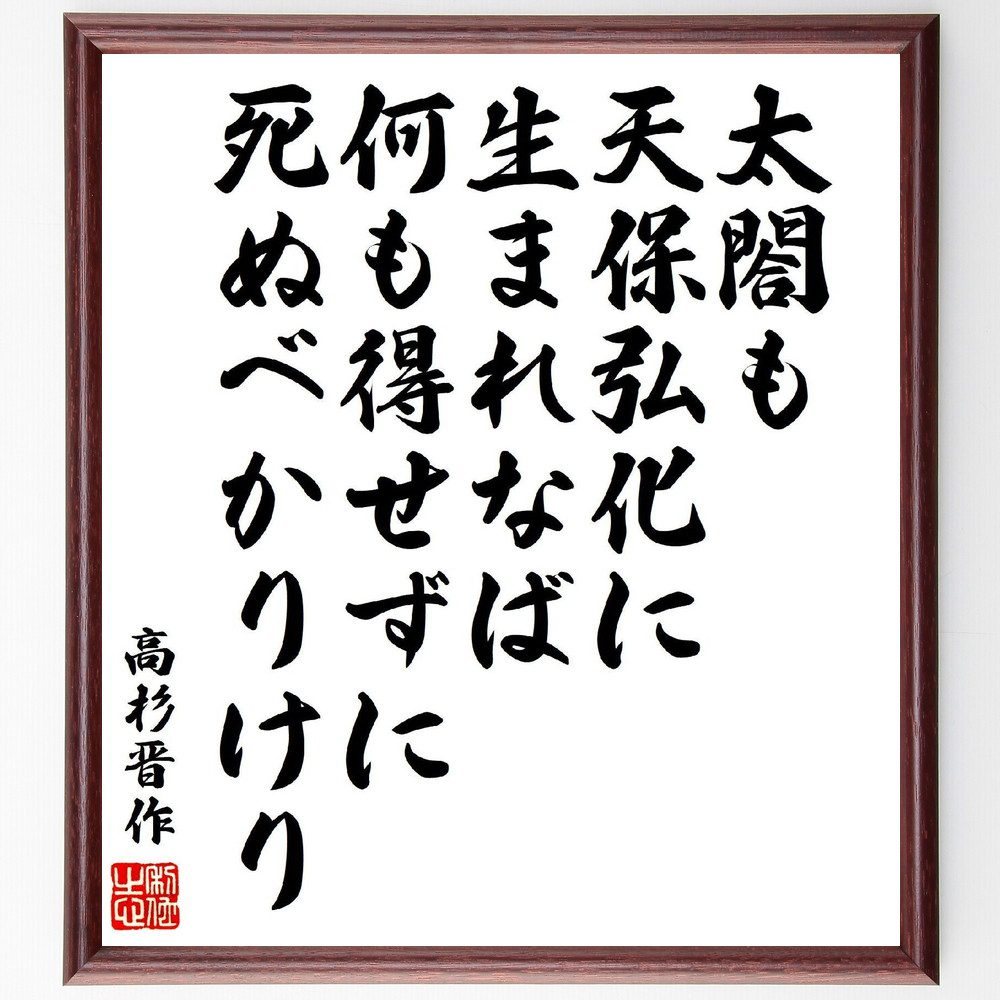 太閤も
天保弘化に
生まれなば
何も得せずに
死ぬべかりけり
高杉晋作